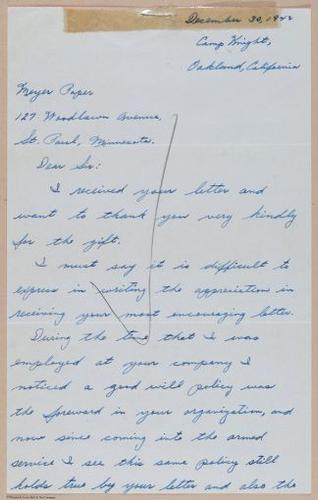 December 30, 1942
Camp Knight,
Oakland, California
Meyer Paper
127 Woodlawn Avenue,
St. Paul, Minnesota.
Dear Sir:
I received your letter and
want to thank you very kindly
for the gift.
I must say it is difficult to
express in writing the appreciation in
receiving your most encouraging letter.
During the time that I was
employed at your company I
noticed a good will policy was
the foreward in your organization, and
now since coming into the armed
service I see this same policy still
holds true by your letter and also the